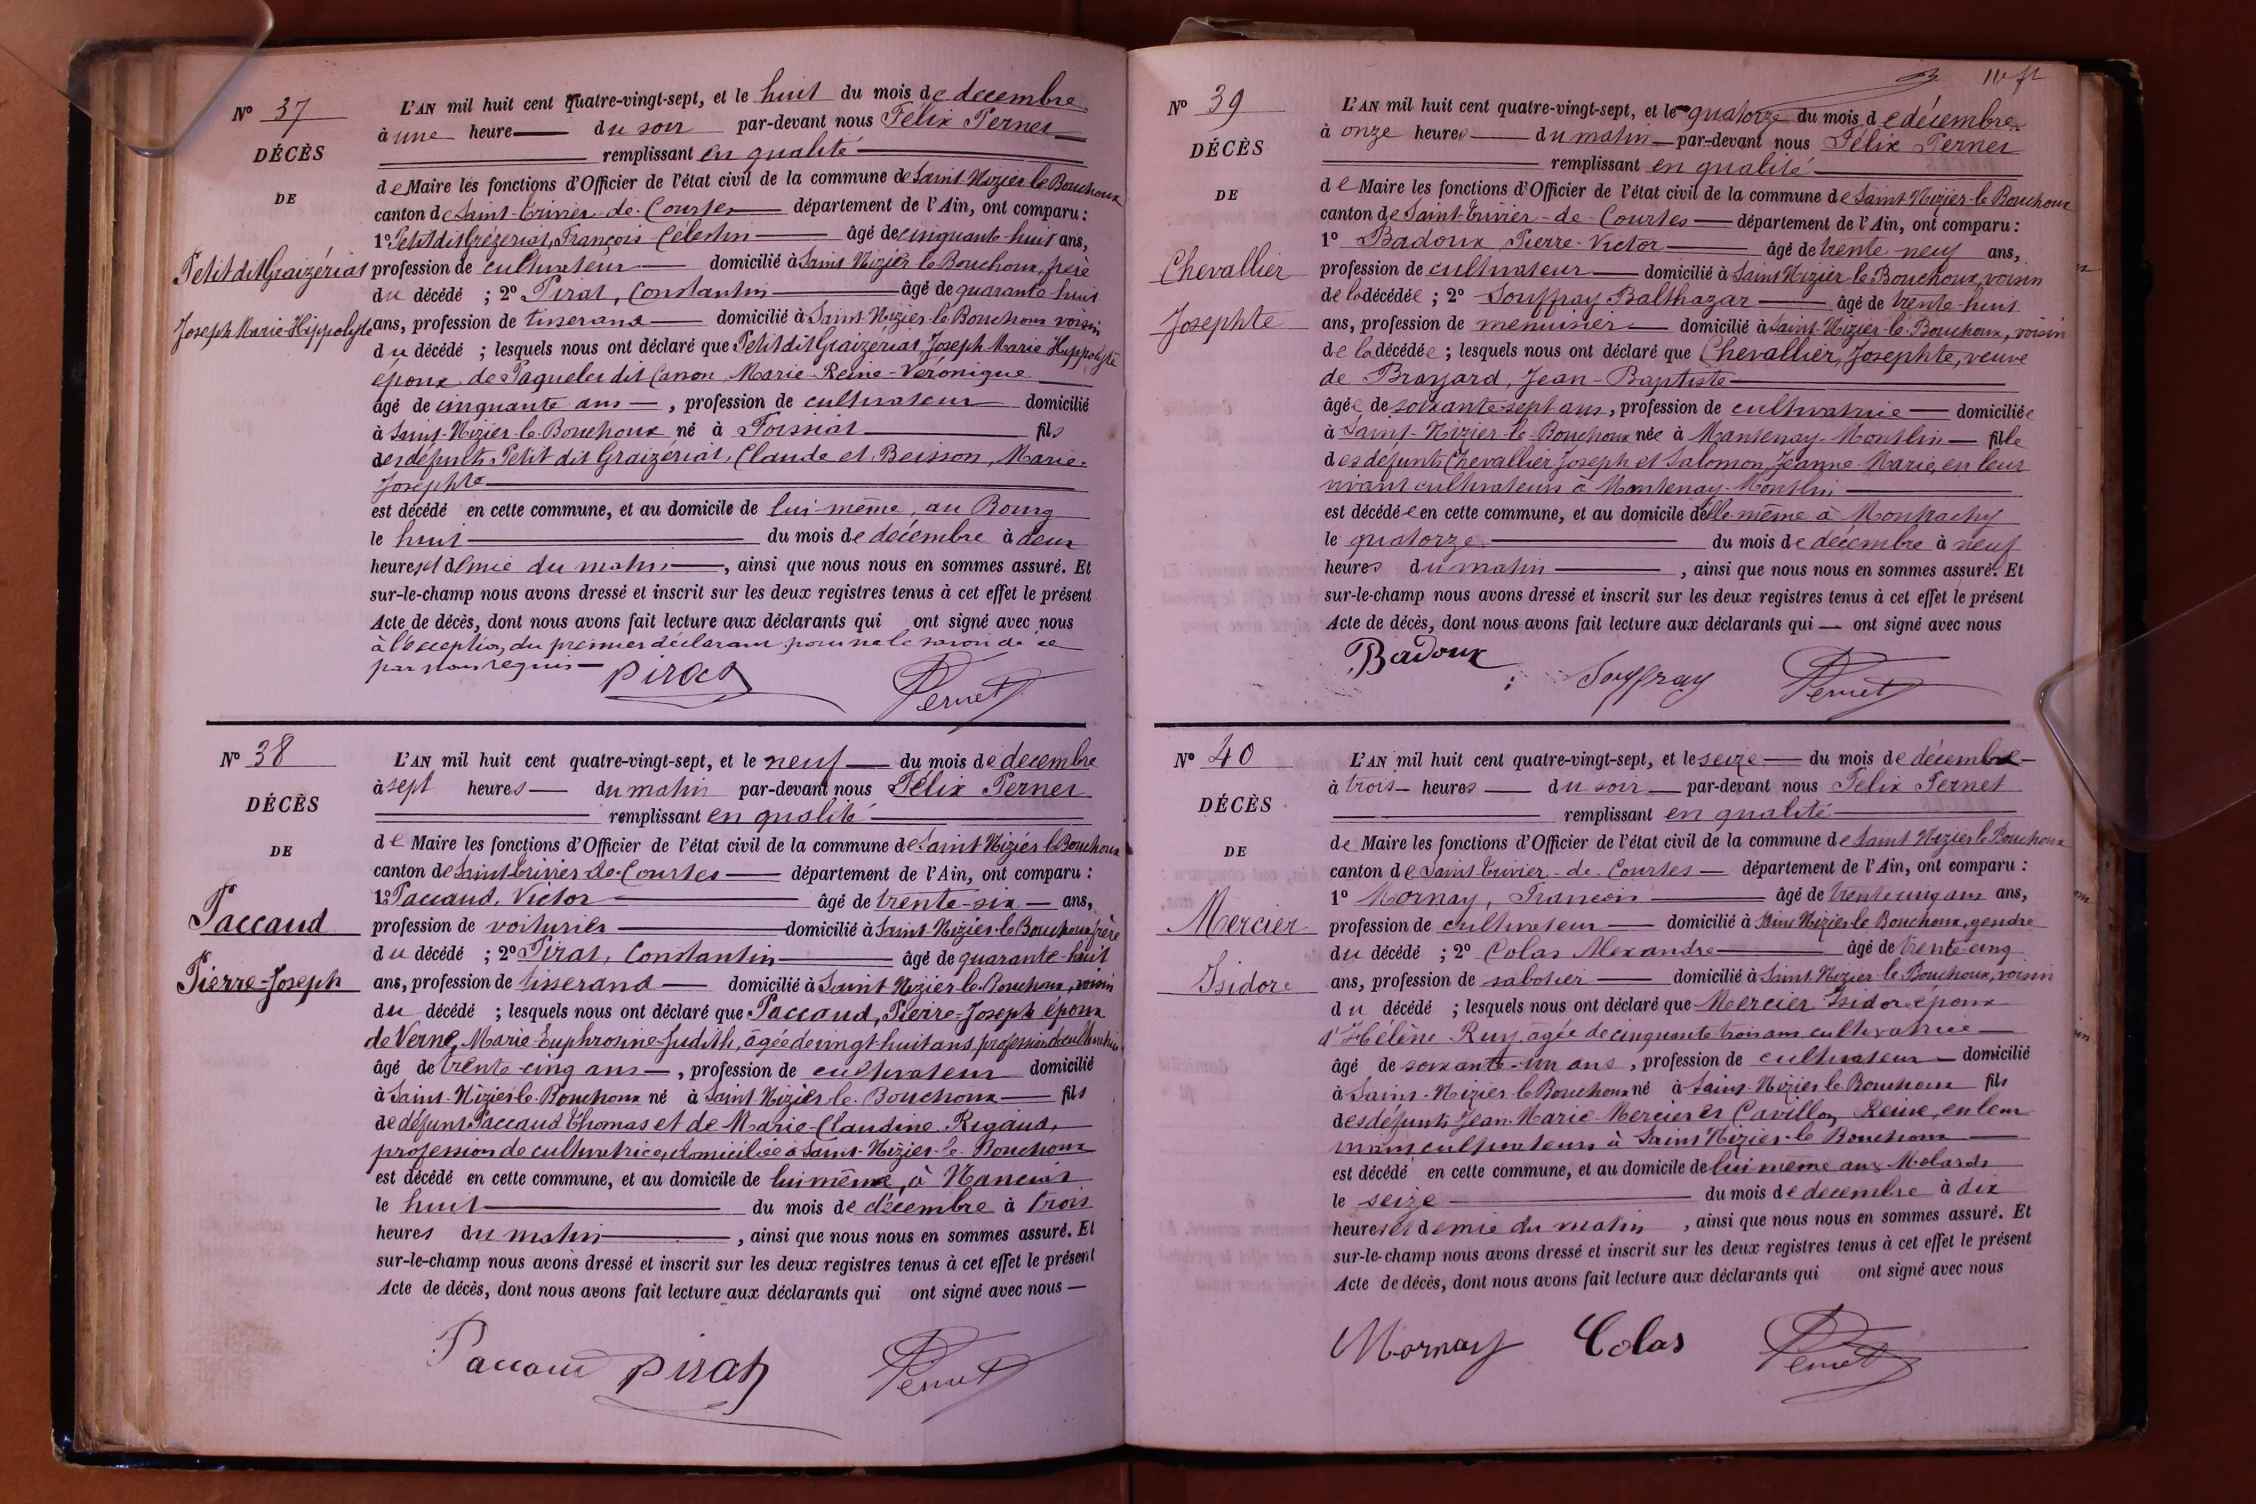 N° 37
DÉCÈS
DE
Petit dit Graizériat
Joseph Marie Hippolyte
L'AN mil huit cent quatre-vingt-sept, et le huit du mois de decembre
à une heure du soir par-devant nous Félix Pernet
remplissant en qualité
de Maire les fonctions d'Officier de l'état civil de la commune de Saint Nizier le Bouchoux
canton de Saint-Trivier-de-Courtes département de l'Ain, ont comparu :
1° Petit dit Grézeriat, François Célestin âgé de cinquante-huit ans,
profession de cultivateur domicilié à Saint Nizier le Bouchoux, frère
du décédé ; 2° Pirat, Constantin âgé de quarante huit
ans, profession de tisserand domicilié à Saint-Nizier le Bouchoux voisin
du décédé ; lesquels nous ont déclaré que Petit dit Graizeriat Joseph Marie Hyppolyte
époux de Paquelet dit Canon, Marie-Reine-Véronique
âgé de cinquante ans, profession de cultivateur domicilié
à Saint-Nizier-le-Bouchoux né à Foissiat fils
des défunts Petit dit Graizeriat, Claude et Beisson, Marie-
Josephte
est décédé en cette commune, et au domicile de lui-même, au Bourg
le huit du mois de décembre à deux
heures et demie du matin, ainsi que nous nous en sommes assuré. Et
sur-le-champ nous avons dressé et inscrit sur les deux registres tenus à cet effet le présent
Acte de décès, dont nous avons fait lecture aux déclarants qui ont signé avec nous
à l'éxception du premier déclarant pour ne le savoir de ce
par nous requis
Pirat Pernet
N° 38
DÉCÈS
DE
Paccaud
Pierre-Joseph
L'AN mil huit cent quatre-vingt-sept, et le neuf du mois de decembre
à sept heures du matin par-devant nous Félix Pernet
remplissant en qualité
de Maire les fonctions d'Officier de l'état civil de la commune de Saint Nizier le Bouchoux
canton de Saint Trivier-de-Courtes département de l'Ain, ont comparu :
1° Paccaud, Victor âgé de trente-six ans,
profession de voiturier domicilié à Saint-Nizier-le-Bouchoux frère
du décédé ; 2° Pirat, Constantin âgé de quarante-huit
ans, profession de tisserand domicilié à Saint Nizier-le-Bouchoux, voisin
du décédé ; lesquels nous ont déclaré que Paccaud, Pierre-Joseph époux
de Verne, Marie-Euphrosine-Judith, âgée de vingt-huit ans, profession de cultivatrice
âgé de trente-cinq ans, profession de cultivateur domicilié
à Saint-Nizier-le-Bouchoux né à Saint-Nizier-le-Bouchoux fils
de défunt Paccaud Thomas et de Marie-Claudine Rigaud,
profession de cultivatrice, domiciliée à Saint-Nizier-le-Bouchoux
est décédé en cette commune, et au domicile de lui même, à Nanciat
le huit du mois de décembre à trois
heures du matin, ainsi que nous nous en sommes assuré. Et
sur-le-champ nous avons dressé et inscrit sur les deux registres tenus à cet effet le présent
Acte de décès, dont nous avons fait lecture aux déclarants qui ont signé avec nous
Paccaud Pirat Pernet
N° 39
DÉCÈS
DE
Chevallier
Josephte
L'AN mil huit cent quatre-vingt-sept, et le quatorze du mois de décembre
à onze heures du matin par-devant nous Félix Pernet
remplissant en qualité
de Maire les fonctions d'Officier de l'état civil de la commune de Saint Nizier-le-Bouchoux
canton de Saint-Trivier-de-Courtes département de l'Ain, ont comparu :
1° Badoux Pierre-Victor âgé de trente neuf ans,
profession de cultivateur domicilié à Saint Nizier-le-Bouchoux, voisin
de la décédée ; 2° Souffray Balthazar âgé de trente-huit
ans, profession de menuisier domicilié à Saint-Nizier-le-Bouchoux, voisin
de la décédée ; lesquels nous ont déclaré que Chevallier, Josephte, veuve
de Brayard, Jean-Baptiste
âgée de soixante-sept ans, profession de cultivatrice domiciliée
à Saint-Nizier-le-Bouchoux née à Mantenay-Montlin fille
des défunts Chevallier Joseph et Salomon Jeanne-Marie, en leur
vivant cultivateurs à Mantenay-Montlin
est décédée en cette commune, et au domicile d'elle-même à Montrachy
le quatorze du mois de décembre à neuf
heures du matin, ainsi que nous nous en sommes assuré. Et
sur-le-champ nous avons dressé et inscrit sur les deux registres tenus à cet effet le présent
Acte de décès, dont nous avons fait lecture aux déclarants qui ont signé avec nous
Badoux Souffray Pernet
N° 40
DÉCÈS
DE
Mercier
Isidore
L'AN mil huit cent quatre-vingt-sept, et le seize du mois de décembre
à trois heures du soir par-devant nous Felix Pernet
remplissant en qualité
de Maire les fonctions d'Officier de l'état civil de la commune de Saint Nizier le Bouchoux
canton de Saint-Trivier-de-Courtes département de l'Ain, ont comparu :
1° Mornay, François âgé de trente cinq ans ans,
profession de cultivateur domicilié à Saint Nizier-le-Bouchoux, gendre
du décédé ; 2° Colas Alexandre âgé de trente-cinq
ans, profession de sabotier domicilié à Saint-Nizier-le-Bouchoux, voisin
du décédé ; lesquels nous ont déclaré que Mercier Isidore époux
d'Hélène Ruy, âgée de cinquante trois ans cultivatrice
âgé de soixante-un ans, profession de cultivateur domicilié
à Saint-Nizier le Bouchoux né à Saint-Nizier le Bouchoux fils
des défunts Jean-Marie Mercier et Cavillon, Reine, en leur
vivant cultivateurs à Saint Nizier-le Bouchoux
est décédé en cette commune, et au domicile de lui même aux Molards
le seize du mois de decembre à dix
heures et demie du matin, ainsi que nous nous en sommes assuré. Et
sur-le-champ nous avons dressé et inscrit sur les deux registres tenus à cet effet le présent
Acte de décès, dont nous avons fait lecture aux déclarants qui ont signé avec nous
Mornay Colas Pernet